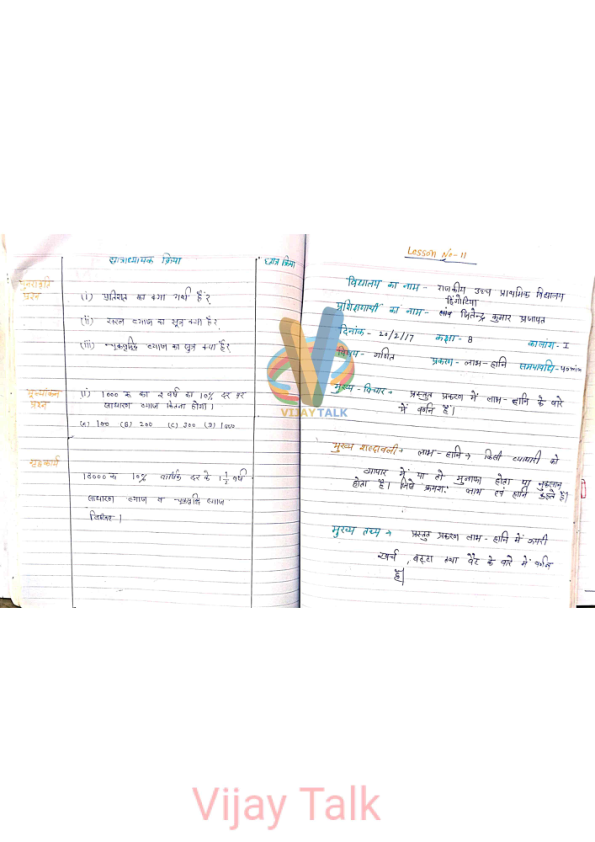 छात्राध्यापक क्रिया
छात्र क्रिया
पुनरावृति
प्रश्न
(i) प्रतिशत का क्या अर्थ है?
(ii) सरल ब्याज का सूत्र क्या है?
(iii) चक्रवृद्धि ब्याज का सूत्र क्या है?
मूल्यांकन
प्रश्न
(i) 1000 रु का 2 वर्ष का 10% दर पर
साधारण ब्याज कितना होगा।
(A) 100 (B) 200 (C) 300 (D)
गृहकार्य
10000 रु 10% वार्षिक दर के 1 1/2 वर्ष
साधारण ब्याज व चक्रवृद्धि ब्याज
Lesson No-11
विद्यालय का नाम - राजकीय उच्च प्राथमिक विद्यालय
का नाम - जितेन्द्र कुमार प्रजापत
दिनांक - 20/2/17 कक्षा - 8 कालांश - I
विषय - गणित प्रकरण - लाभ-हानि समयावधि - 40min
मुख्य - विचार → प्रस्तुत प्रकरण में लाभ-हानि के बारे
में है।
मुख्य शब्दावली → लाभ-हानि → किसी व्यापारी को
व्यापार में या तो मुनाफा होता या नुकसान
होता है। जिसे क्रमशः लाभ एवं हानि कहते है।
मुख्य तथ्य → प्रस्तुत प्रकरण लाभ-हानि में ऊपरी
खर्च, बट्टा तथा वैट के बारे में
है।
VIJAY TALK
Vijay Talk